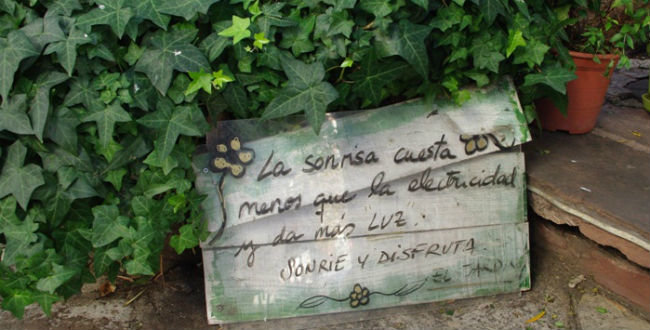 La sonrisa cuesta
menos que la electricidad
y da más LUZ.
SONRIE Y DISFRUTA.
EL JARDIN